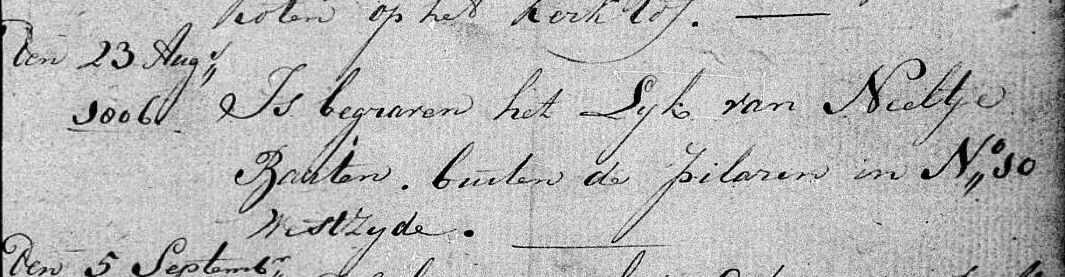 koten op het kerk lof. —
Den 23 Aug:s
1806 Is begraven het Lyk van Neeltje
Baaten. buiten de pilaren in No 10
westzyde. —
Den 5 Septembr